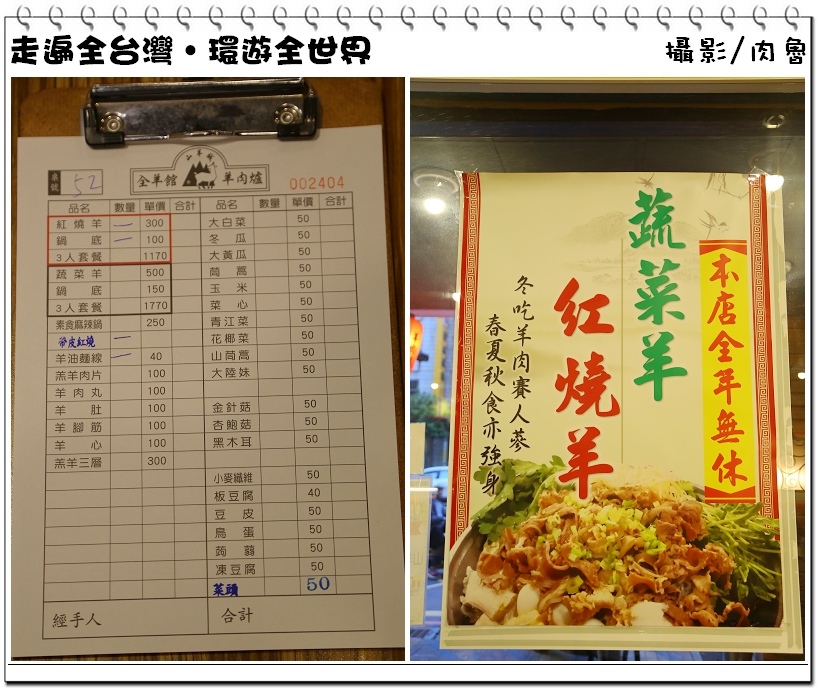 走遍全台灣·環遊全世界
攝影/肉魯
桌號 52
全羊館 羊肉爐
002404
品名 數量 單價 合計 品名 數量 單價 合計
紅燒羊 一 300 大白菜 50
鍋底 一 100 冬瓜 50
3人套餐 1170 大黃瓜 50
蔬菜羊 500 茼蒿 50
鍋底 150 玉米 50
3人套餐 1770 菜心 50
素食麻辣鍋 250 青江菜 50
帶皮紅燒 一 花椰菜 50
羊油麵線 一 40 山茼蒿 50
羔羊肉片 100 大陸妹 50
羊肉丸 100
羊肚 100 金針菇 50
羊腳筋 100 杏鮑菇 50
羊心 100 黑木耳 50
羔羊三層 300
小麥纖維 50
板豆腐 40
豆皮 50
鳥蛋 50
蒟蒻 50
凍豆腐 50
菜頭 50
經手人 合計
《本店全年無休》
蔬菜羊
紅燒羊
冬吃羊肉賽人蔘
春夏秋食亦強身